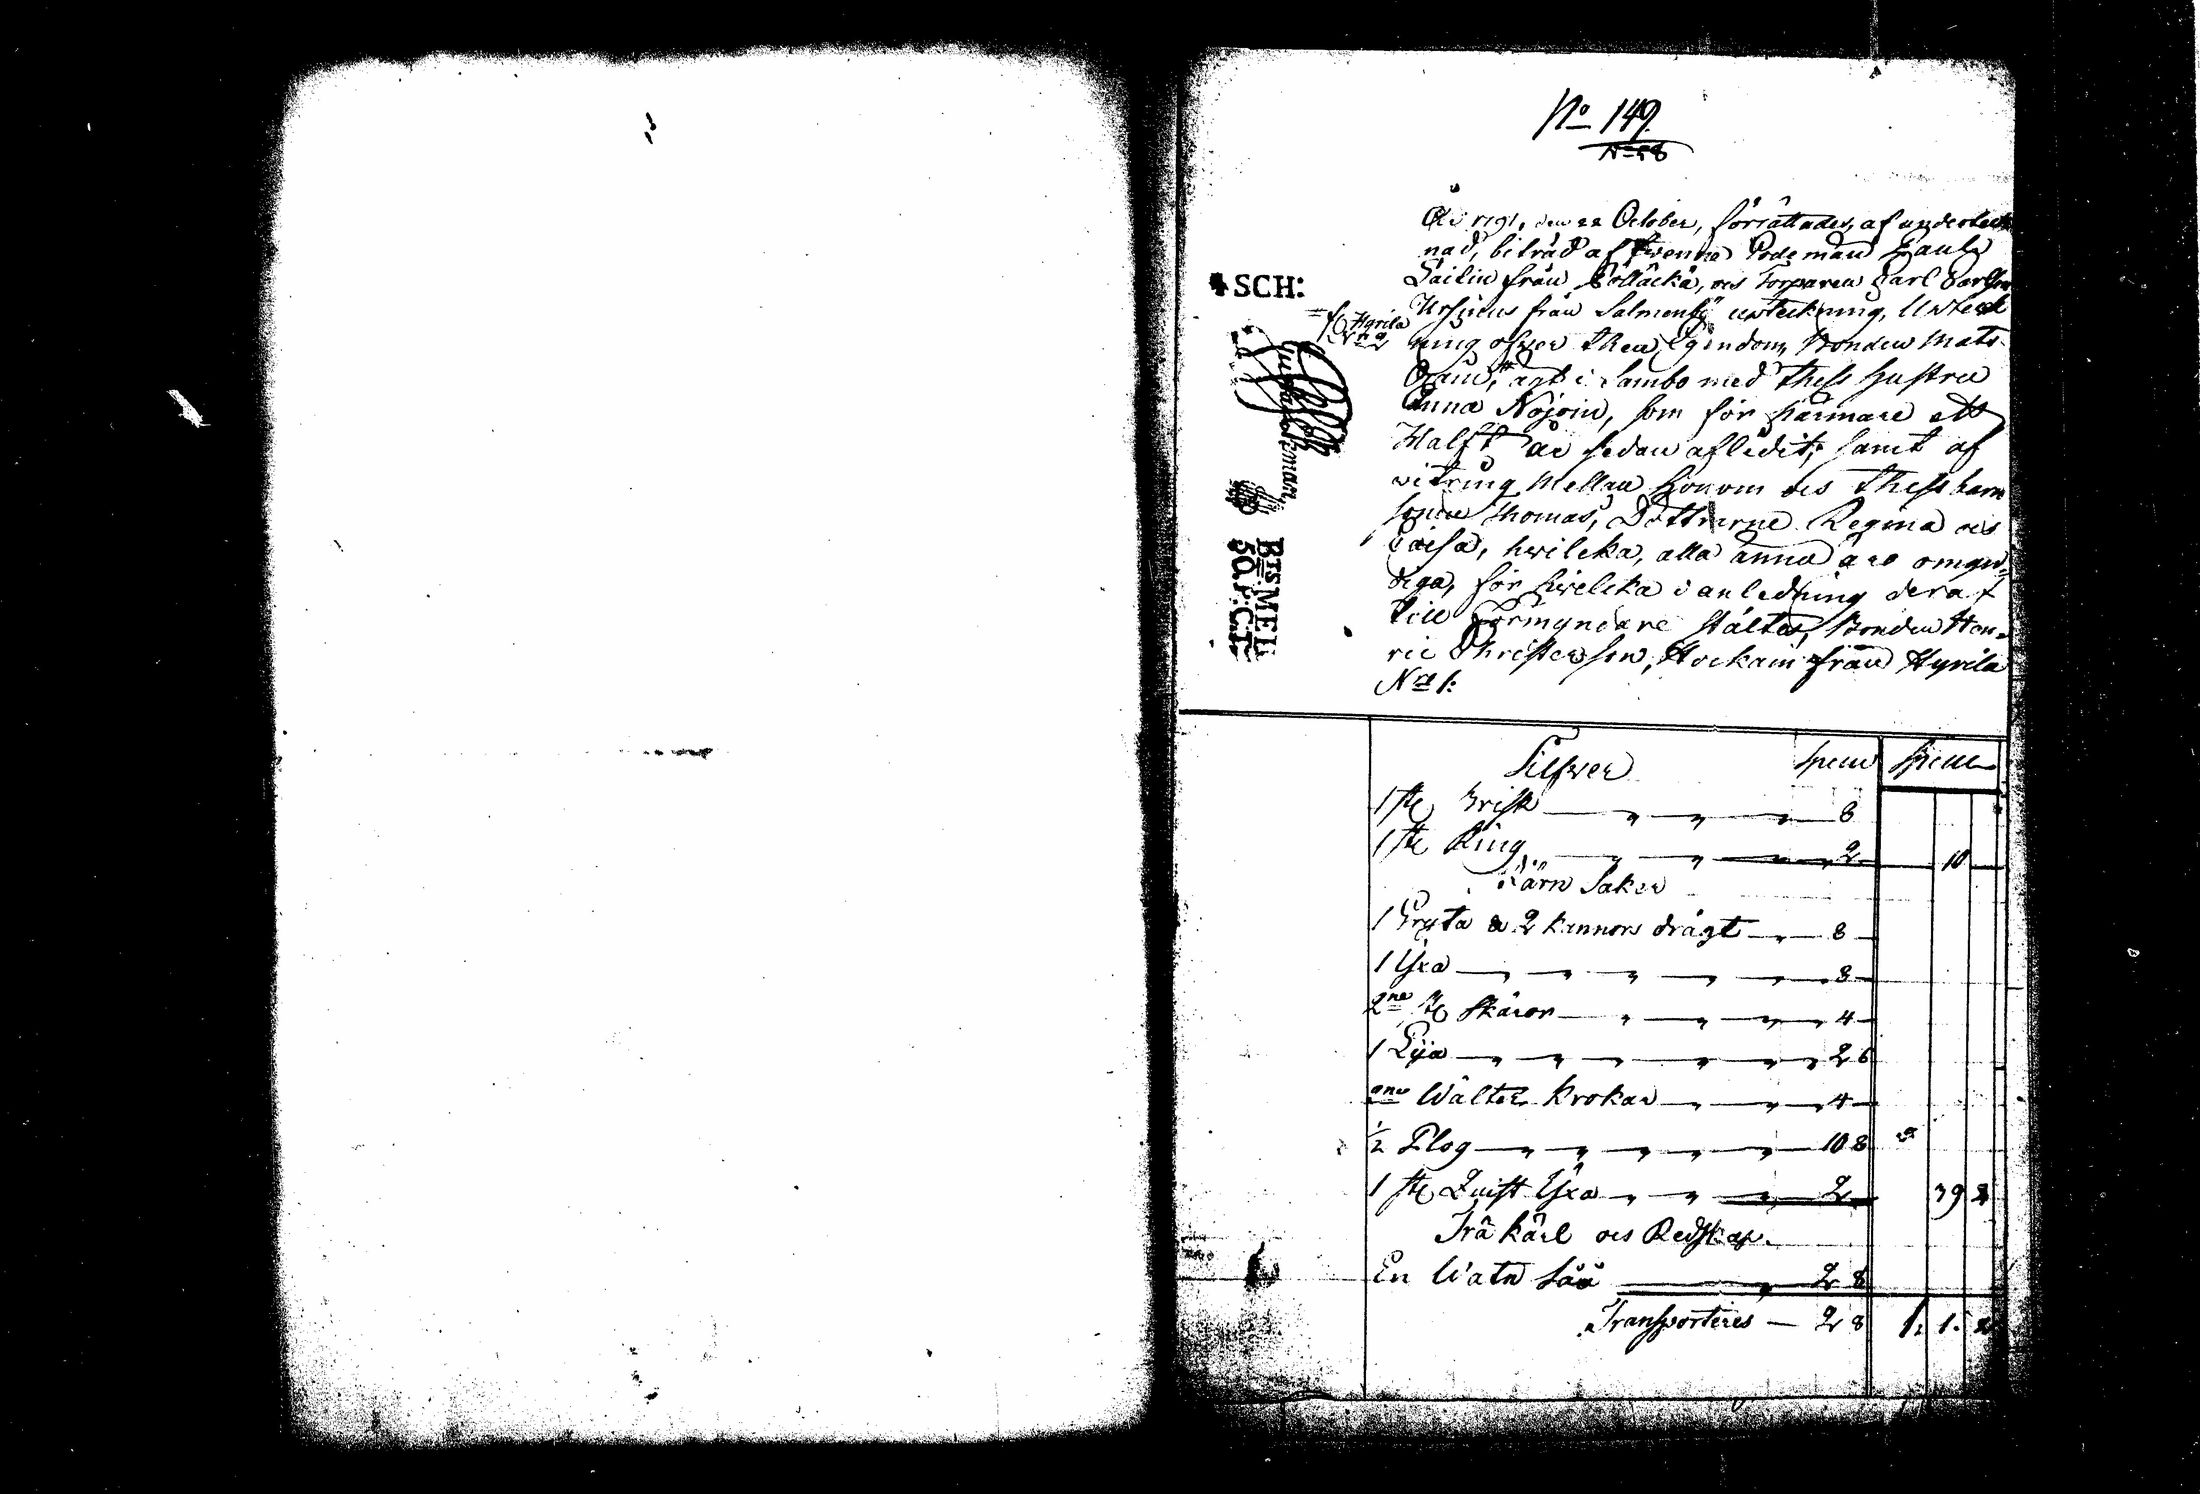 No 149.
No 58
År 1791, den 22 October, förrättades, af underteck
nad, biträd af twenne Gode män Paul
Sailin från Pölläckä, och Torparen Carl Carlson
Ursinus från Salmenby upteckning, Upteck
ning öfwer then Egendom, Bonden Mats
Hyrila
No 2
ägt i Sambo med thess Hustru
Anna Nojoin, som för närmare ett
Halft år sedan aflidit; samt af
witring mellan honom och thess barn
sonen Thomas, Döttrarne Regina och
Caisa, hwilcka, alla ännu äro omyn=
diga, för hwilcka i anledning deraf
till Förmyndare stältes, Bonden Hen=
ric Christerson, Hockain från Hyrila
No 1:
4 SCH:
BTS MELL
50. P: CT
Silfwer
1 st Brisk 8
1 st Ring 2 10
Järn Saker
1 Gryta a 2 kannors drägt 8
1 Yxa 8
2ne st Skäror 4
1 Lya 2 6
2ne Wälter Krokar 4
1/2 Plog 10 8
1 st Quist Yxa 2 39 2
Trä kärl och Redskap.
En Watn Såå 2 8
Transporteres 2 8 1. 1. 2